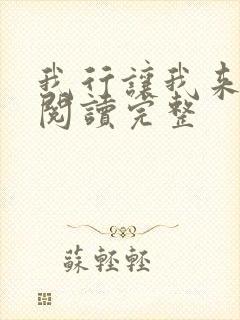 我行讓我來
閱讀完整
蘇輕輕